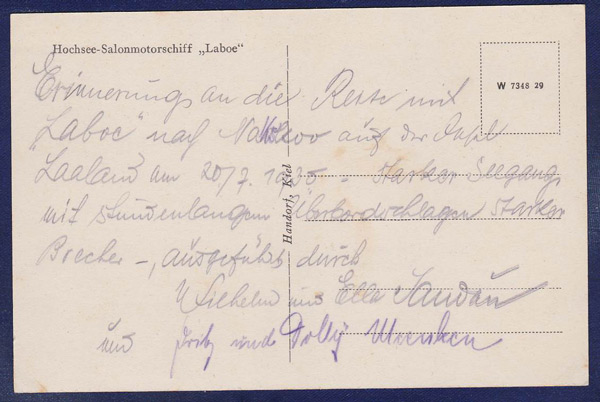 Hochsee-Salonmotorschiff „Laboe"
W 7348 29
Erinnerung an die Reise mit
„Laboe" nach Nakskov auf der Insel
Laaland am 20/7. 1935 - Starker Seegang,
mit stundenlangem Überbordschlagen starker
Brecher -, ausgeführt durch
Wilhelm und Ella
und Fritz und Dolly
Handorf, Kiel